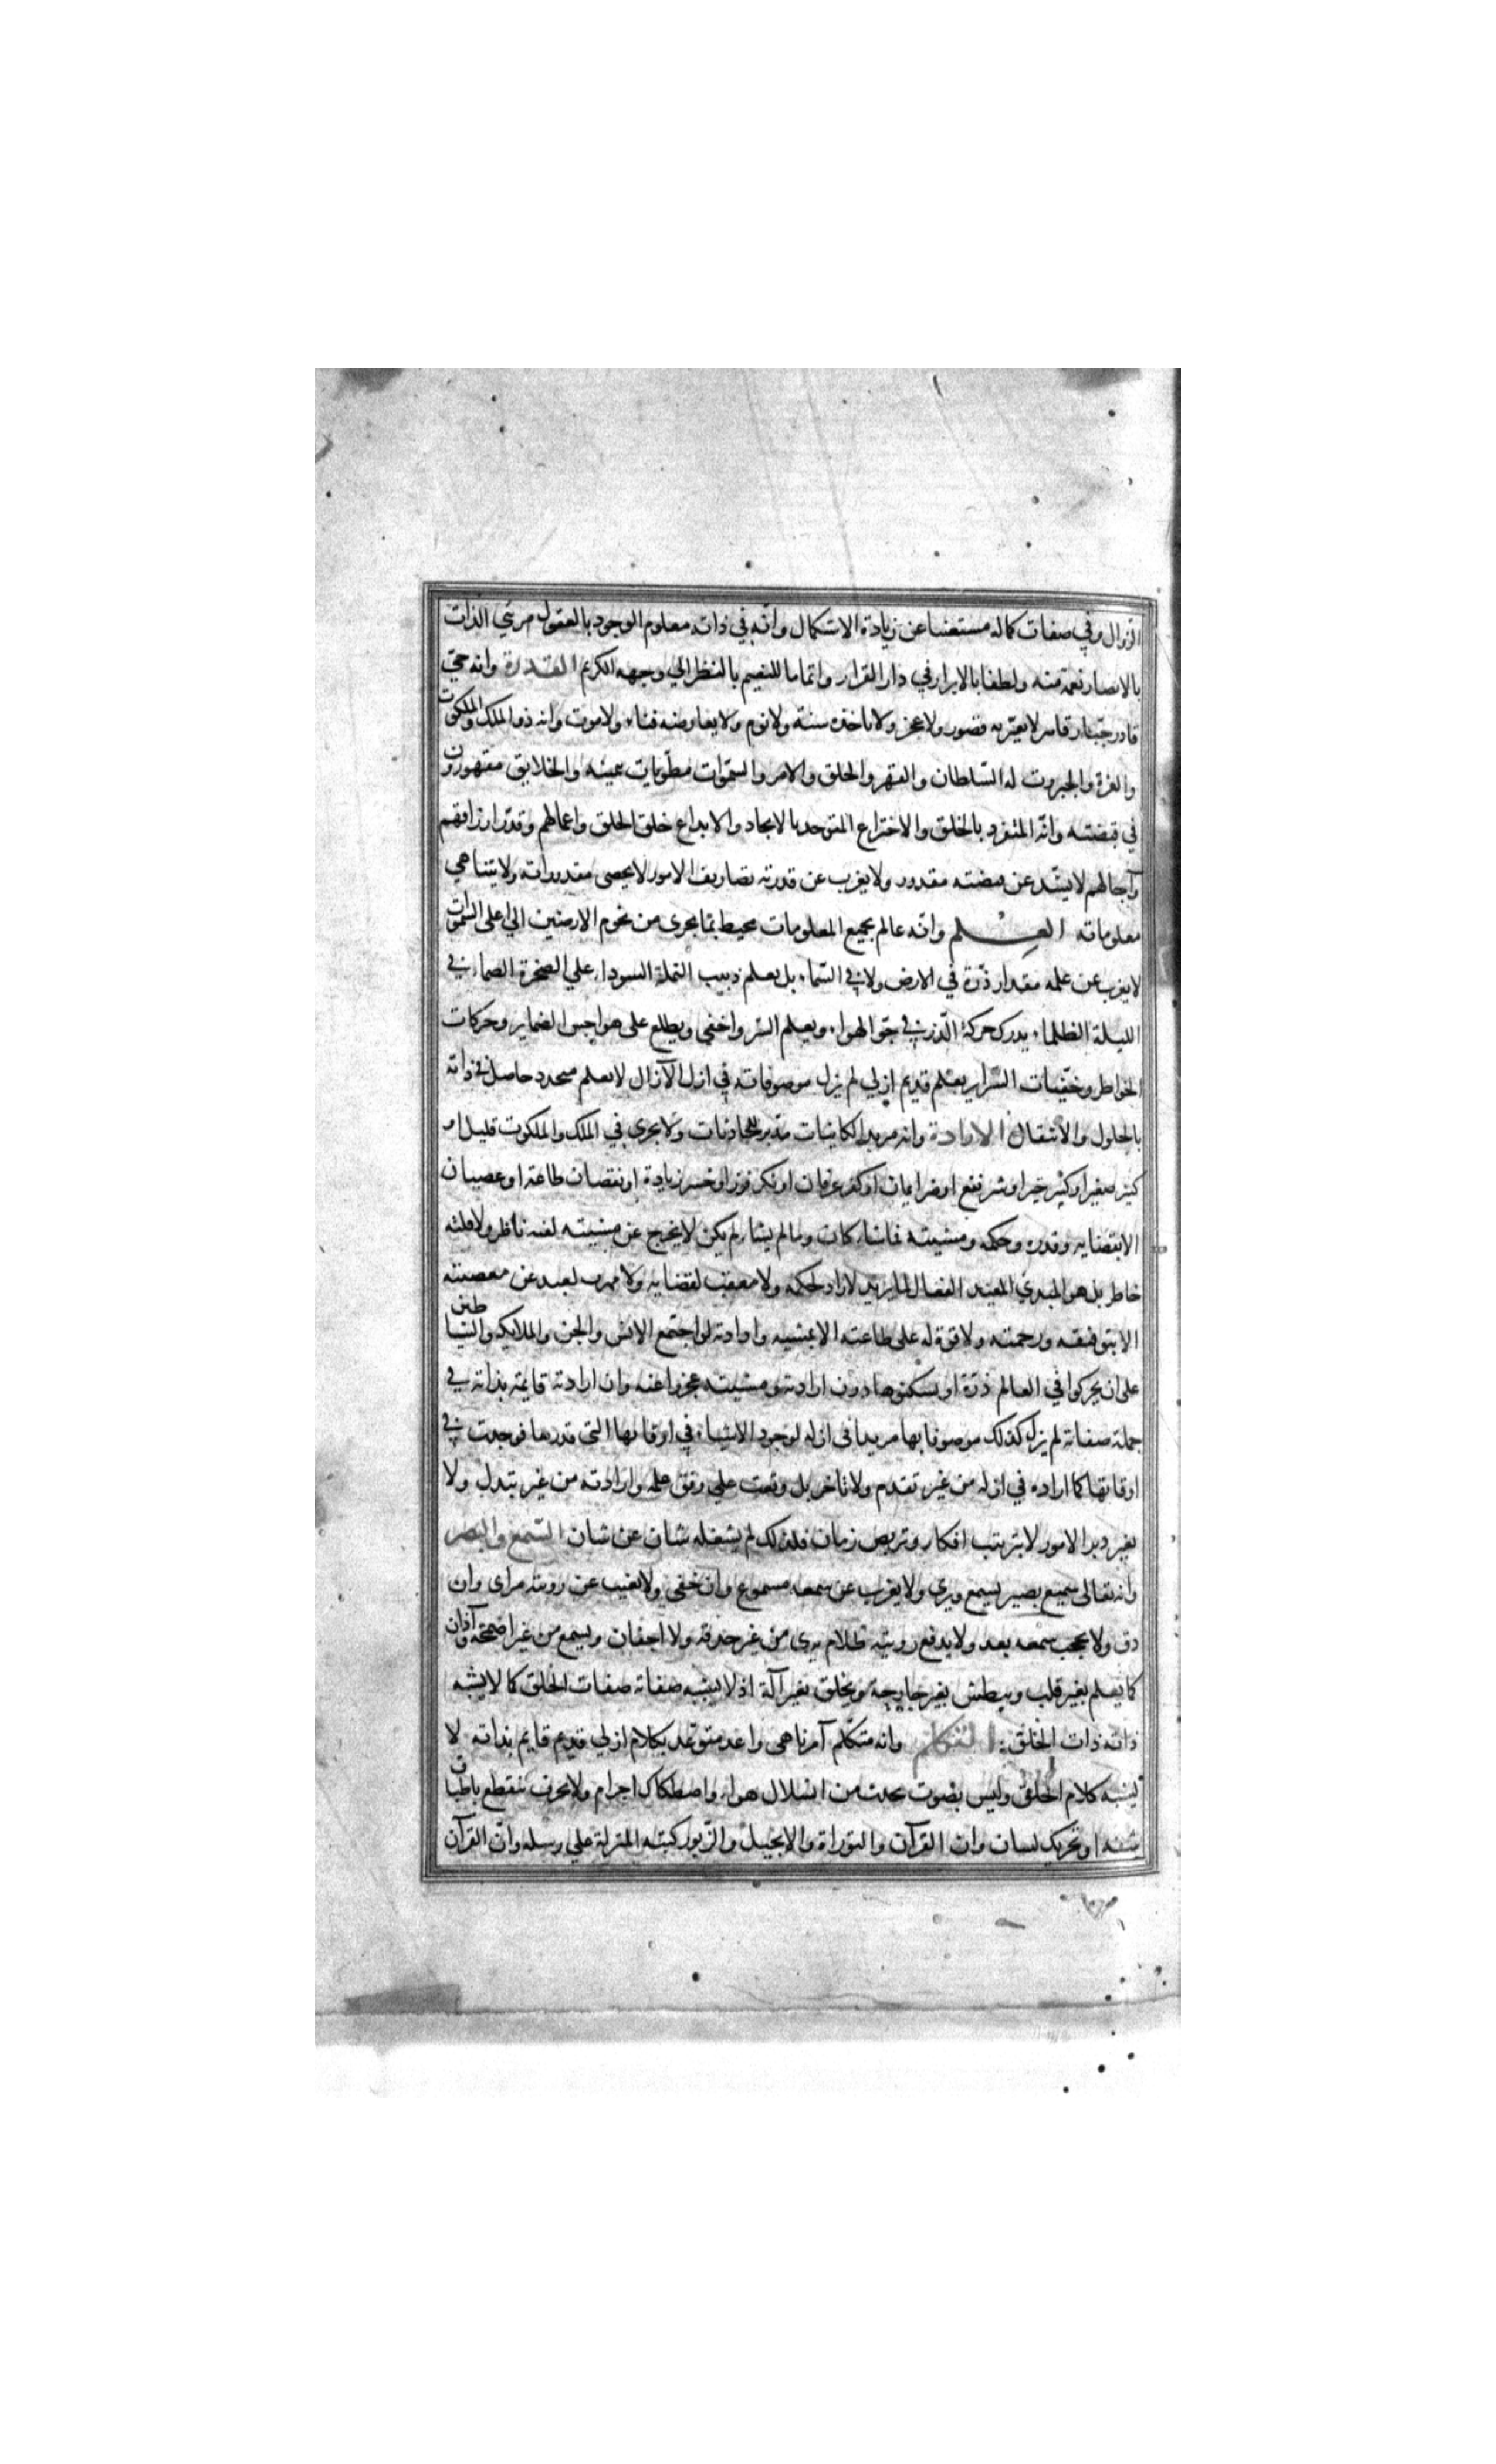 الزوال وفي صفات كماله مستغنيا عن زيادة الاستكمال وانه في ذاته معلوم الوجود بالعقول مرئي الذات
بالابصار نعمة منه ولطفا بالابرار في دار القرار واتماما للنعيم بالنظر الي وجهه الكريم القدرة وانه حي
قادر جبار قاهر لا يعتريه قصور ولا عجز ولا تاخذه سنة ولا نوم ولا يعارضه فناء ولا موت وانه ذو الملك والملكوت
والعزة والجبروت له السلطان والقهر والخلق والامر والسموات مطويات بيمينه والخلايق مقهورون
في قبضته وانه المتفرد بالخلق والاختراع المتوحد بالايجاد والابداع خلق الخلق واعمالهم وقدر ارزاقهم
وآجالهم لا يشذ عن قبضته مقدور ولا يعزب عن قدرته تصاريف الامور لا يحصى مقدوراته ولا يتناهي
معلوماته العلم وانه عالم بجميع المعلومات محيط بما يجرى من تخوم الارضين الي اعلى السموات
لا يعزب عن علمه مقدار ذرة في الارض ولا في السماء بل يعلم دبيب النملة السوداء علي الصخرة الصماء في
الليلة الظلماء يدرك حركة الذر في جو الهواء ويعلم السر واخفى ويطلع على هواجس الضماير وحركات
الخواطر وخفيات السراير بعلم قديم ازلي لم يزل موصوفا به في ازل الآزال لا بعلم متجدد حاصل في ذاته
بالحلول والانتقال الارادة وانه مريد الكاينات مدبر للحادثات ولا يجرى في الملك والملكوت قليل او
كثير صغير او كبير خير او شر نفع او ضر ايمان او كفر عرفان او نكر فوز او خسر زيادة او نقصان طاعة او عصيان
الا بقضايه وقدره وحكمه ومشيته فما شاء كان وما لم يشاء لم يكن لا يخرج عن مشيته لفتة ناظر ولا فلتة
خاطر بل هو المبدي المعيد الفعال لما يريد لا راد لحكمه ولا معقب لقضايه ولا مهرب لعبد عن معصيته
الا بتوفيقه ورحمته ولا قوة له على طاعته الا بمشيه وارادته لو اجتمع الانس والجن والملايكه والشياطين
على ان يحركوا في العالم ذرة او يسكنوها دون ارادته ومشيته عجزوا عنه وان ارادته قايمة بذاته في
جملة صفاته لم يزل كذلك موصوفا بها مريدا في ازله لوجود الاشياء في اوقاتها التى قدرها فوجدت في
اوقاتها كما اراده في ازله من غير تقدم ولا تاخر بل وقعت علي وفق علمه وارادته من غير تبدل ولا
تغير دبر الامور لا بترتيب افكار وتربص زمان فلذلك لم يشغله شان عن شان السمع والبصر
وانه تعالى سميع بصير يسمع ويرى ولا يعزب عن سمعه مسموع وان خفى ولا يغيب عن رويته مراى وان
دق ولا يحجب سمعه بعد ولا يدفع رويته ظلام يرى من غير حدقة ولا اجفان ويسمع من غير اصمخة وآذان
كما يعلم بغير قلب ويبطش بغير جارحة ويخلق بغير آلة اذ لا يشبه صفاته صفات الخلق كما لا يشبه
ذاته ذات الخلق: التكلم وانه متكلم آمر ناهى واعد متوعد بكلام ازلي قديم قايم بذاته لا
يشبه كلام الخلق وليس بصوت يحدث من انسلال هواء واصطكاك اجرام ولا بحرف ينقطع باطباق
شفه او تحريك لسان وان القرآن والتوراة والانجيل والزبور كتبه المنزلة علي رسله وان القرآن